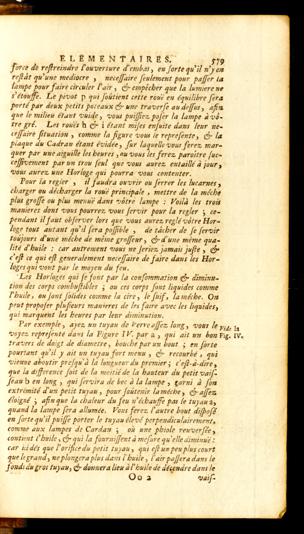 ELEMENTAIRES. 579
force de restreindre l'ouverture d'embas, en sorte qu'il n'y en
restât qu'une mediocre, necessaire seulement pour passer la
lampe pour faire circuler l'air, & empêcher que la lumiere ne
s'étouffe. Le pivot p qui soûtient cette rouë en équilibre sera
porté par deux petits poteaux & une traverse au dessus, afin
que le milieu étant vuide, vous puissiez poser la lampe à vô-
tre gré. Les rouës h & i étant mises ensuite dans leur ne-
cessaire situation, comme la figure vous le represente, & la
plaque du Cadran étant évidée, sur laquelle vous ferez mar-
quer par une aiguille les heures, ou vous les ferez paroître suc-
cessivement par un trou fixe que vous aurez entaillé à jour,
vous aurez une Horloge qui pourra vous contenter.
Pour la regler, il faudra ouvrir ou serrer les lucarnes,
charger ou décharger la rouë principale, mettre de la méche
plus grosse ou plus menuë dans vôtre lampe: Voilà les trois
manieres dont vous pourrez vous servir pour la regler; ce-
pendant il faut observer lors que vous aurez reglé vôtre Hor-
loge tout autant qu'il sera possible, de tâcher de se servir
toûjours d'une méche de même grosseur, & d'une même qua-
lité d'huile: car autrement vous ne seriez jamais juste, &
c'est ce qui est generalement necessaire de faire dans les Hor-
loges qui vont par le moyen du feu.
Les Horloges qui se font par la consommation & diminu-
tion des corps combustibles; ou ces corps sont liquides comme
l'huile, ou sont solides comme la cire, le suif, la méche. On
peut proposer plusieurs manieres de les faire avec les liquides,
qui marquent les heures par leur diminution.
Par exemple, ayez un tuyau de Verre assez long, vous le
voyez representé dans la Figure IV. par a, qui ait un bon
travers de doigt de diametre, bouché par un bout; en sorte
pourtant qu'il y ait un tuyau fort menu, & recourbé, qui
vienne aboutir presqu'à la longueur du premier; c'est-à-dire,
que la difference soit de la moitié de la hauteur du petit vais-
seau b en long, qui servira de bec à la lampe, garni à son
extremité d'un petit tuyau, pour soûtenir la méche, & assez
éloigné; afin que la chaleur du feu n'échauffe pas le tuyau a,
quand la lampe sera allumée. Vous ferez l'autre bout disposé
en sorte qu'il puisse porter le tuyau élevé perpendiculairement,
comme aux lampes de Cardan; où une phiole renversée,
contient l'huile, & qui la fournissent à mesure qu'elle diminuë:
car si-dés que l'orifice du petit tuyau, qui est un peu plus court
que le grand, ne plongera plus dans l'huile, l'air passera dans le
fonds du gros tuyau, & donnera lieu à l'huile de décendre dans le
Ooo 2 vais-
Vide in
Fig. IV.